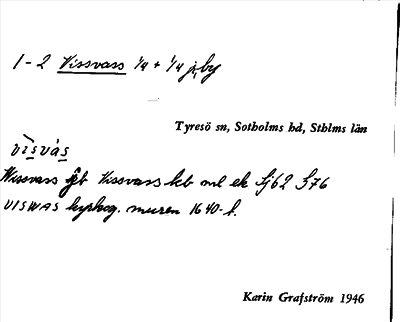 1-2 Vissvass 1/4 + 1/4 by
Tyresö sn, Sotholms hd, Sthlms län
visvas
Wissvass Vissvass kb ml ek Sj62 376
VISWAS kyrkog. muren 1640-t.
Karin Grafström 1946